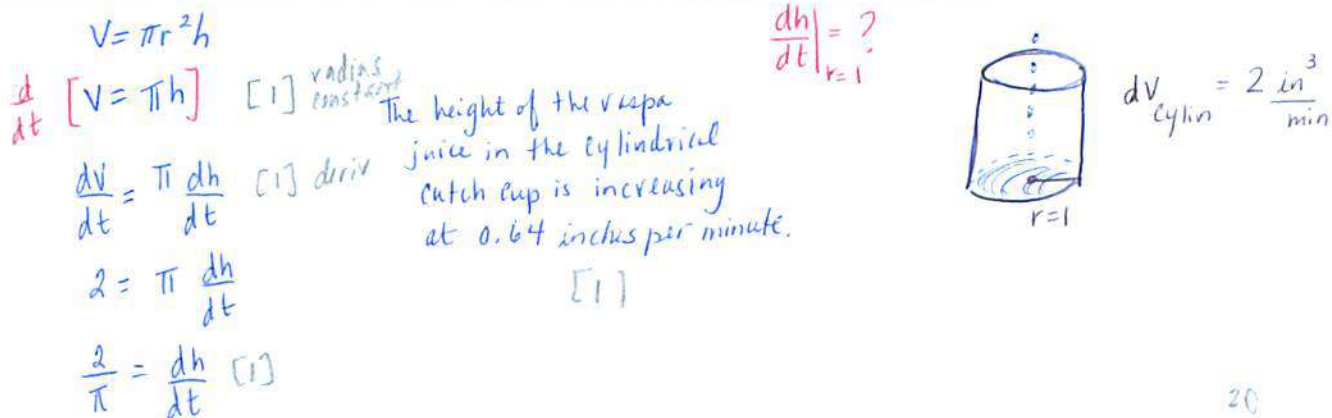 V = πr²h
d/dt [V = πh] [1] radius constant
dV/dt = π dh/dt [1] deriv
2 = π dh/dt
2/π = dh/dt [1]
The height of the vespa
juice in the cylindrical
catch cup is increasing
at 0.64 inches per minute.
[1]
dh/dt|r=1 = ?
dV cylin = 2 in³/min
r=1
20